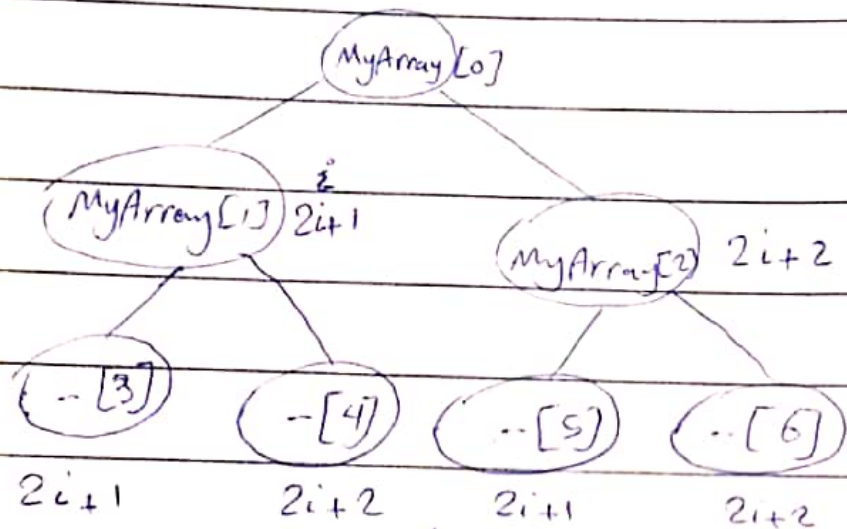 MyArray[0]
i
MyArray[1] 2i+1
MyArray[2] 2i+2
..[3] ..[4] ..[5] ..[6]
2i+1 2i+2 2i+1 2i+2